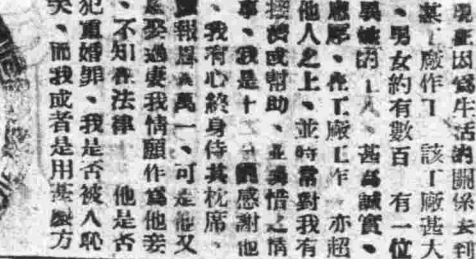 因爲生活的關係到
某工廠作工 該工廠甚大
、男女約有數百 有一位
的工人、甚爲誠實、
、在工廠工作 亦超
他人之上、並時常對我有
或幫助、 惜之情
事、我是十二 感謝他
、我有心終身侍其枕席、
報 萬一、可是他又
娶過妻我情願作爲他妾
、不知在法律 他是否
犯重婚罪、我是否被人恥
笑、而我或者是用甚麽方